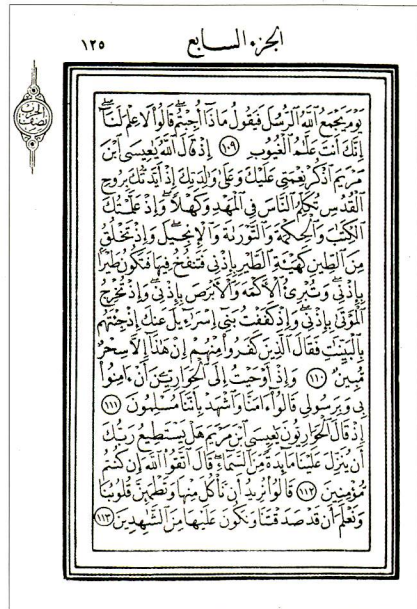 الجزء السابع
١٢٥
نصف
الحزب
يَوْمَ يَجْمَعُ ٱللَّهُ ٱلرُّسُلَ فَيَقُولُ مَاذَآ أُجِبْتُمْ ۖ قَالُوا۟ لَا عِلْمَ لَنَآ ۖ
إِنَّكَ أَنتَ عَلَّٰمُ ٱلْغُيُوبِ ١٠٩ إِذْ قَالَ ٱللَّهُ يَٰعِيسَى ٱبْنَ
مَرْيَمَ ٱذْكُرْ نِعْمَتِى عَلَيْكَ وَعَلَىٰ وَٰلِدَتِكَ إِذْ أَيَّدتُّكَ بِرُوحِ
ٱلْقُدُسِ تُكَلِّمُ ٱلنَّاسَ فِى ٱلْمَهْدِ وَكَهْلًا ۖ وَإِذْ عَلَّمْتُكَ
ٱلْكِتَٰبَ وَٱلْحِكْمَةَ وَٱلتَّوْرَىٰةَ وَٱلْإِنجِيلَ ۖ وَإِذْ تَخْلُقُ
مِنَ ٱلطِّينِ كَهَيْـَٔةِ ٱلطَّيْرِ بِإِذْنِى فَتَنفُخُ فِيهَا فَتَكُونُ طَيْرًۢا
بِإِذْنِى ۖ وَتُبْرِئُ ٱلْأَكْمَهَ وَٱلْأَبْرَصَ بِإِذْنِى ۖ وَإِذْ تُخْرِجُ
ٱلْمَوْتَىٰ بِإِذْنِى ۖ وَإِذْ كَفَفْتُ بَنِىٓ إِسْرَٰٓءِيلَ عَنكَ إِذْ جِئْتَهُم
بِٱلْبَيِّنَٰتِ فَقَالَ ٱلَّذِينَ كَفَرُوا۟ مِنْهُمْ إِنْ هَٰذَآ إِلَّا سِحْرٌ
مُّبِينٌ ١١٠ وَإِذْ أَوْحَيْتُ إِلَى ٱلْحَوَارِيِّـۧنَ أَنْ ءَامِنُوا۟
بِى وَبِرَسُولِى قَالُوٓا۟ ءَامَنَّا وَٱشْهَدْ بِأَنَّنَا مُسْلِمُونَ ١١١
إِذْ قَالَ ٱلْحَوَارِيُّونَ يَٰعِيسَى ٱبْنَ مَرْيَمَ هَلْ يَسْتَطِيعُ رَبُّكَ
أَن يُنَزِّلَ عَلَيْنَا مَآئِدَةً مِّنَ ٱلسَّمَآءِ ۖ قَالَ ٱتَّقُوا۟ ٱللَّهَ إِن كُنتُم
مُّؤْمِنِينَ ١١٢ قَالُوا۟ نُرِيدُ أَن نَّأْكُلَ مِنْهَا وَتَطْمَئِنَّ قُلُوبُنَا
وَنَعْلَمَ أَن قَدْ صَدَقْتَنَا وَنَكُونَ عَلَيْهَا مِنَ ٱلشَّٰهِدِينَ ١١٣